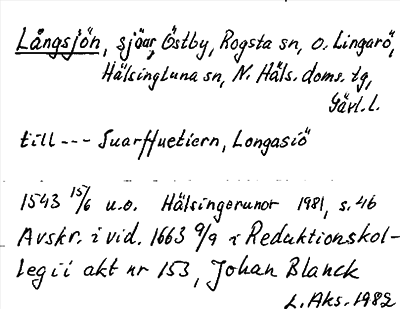 Långsjön, sjöar, Östby, Rogsta sn, o. Lingarö,
Hälsingtuna sn, N. Häls. doms. tg,
Gävl. l.
till --- Suartfluetiern, Longasiö
1543 15/6 u.o. Hälsingerunor 1981, s. 46
Avskr. i vid. 1663 9/9 i Reduktionskol-
legii akt nr 153, Johan Blanck
L. Aks. 1982